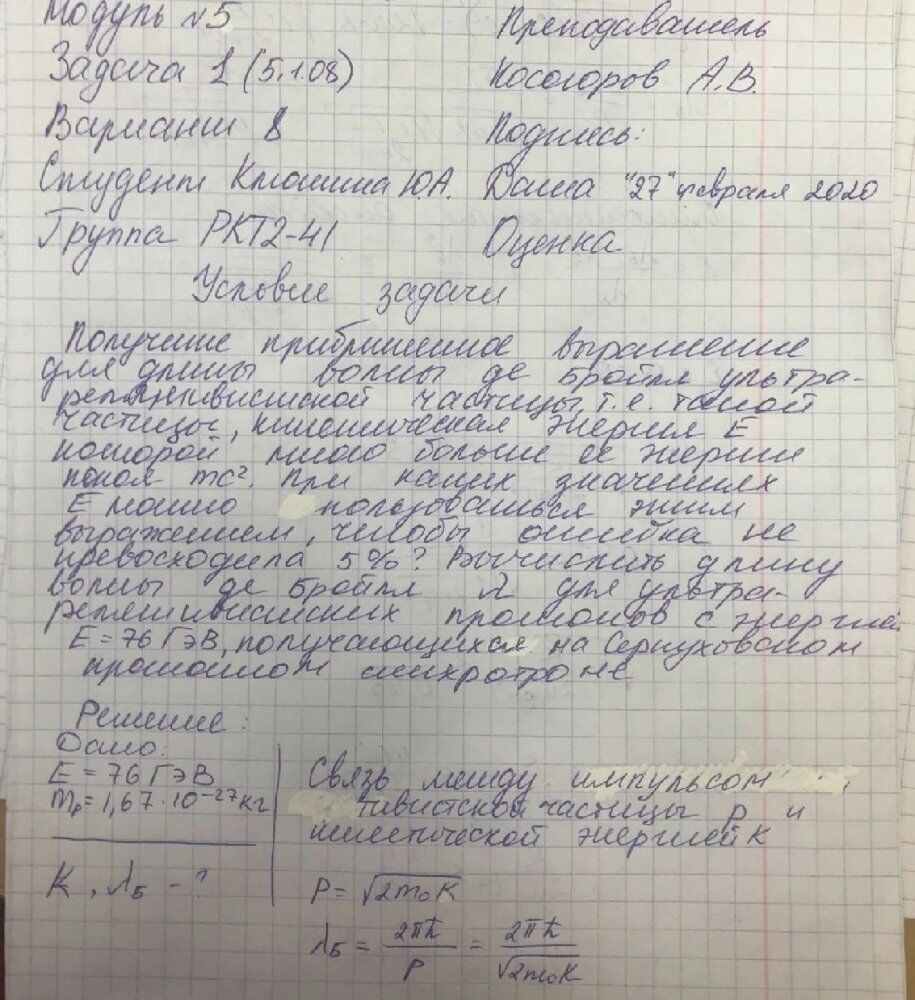 Модуль №5
Преподаватель
Задача 1 (5.1.08)
Косогоров А.В.
Вариант 8
Подпись:
Студент Клошина Ю.А.
Дата "27" февраля 2020
Группа РКТ2-41
Оценка
Условие задачи
Получите приближенное выражение
для длины волны де Бройля ультра-
релятивистской частицы, т.е. такой
частицы, кинетическая энергия E
которой много больше её энергии
покоя mc². При каких значениях
E можно пользоваться этим
выражением, чтобы ошибка не
превосходила 5%? Вычислить длину
волны де Бройля λ для ультра-
релятивистских протонов с энергией
E = 76 ГэВ, получающихся на Серпуховском
протонном синхротроне
Решение:
Дано:
E = 76 ГэВ
mₚ = 1,67 · 10⁻²⁷ кг
K, λБ - ?
Связь между импульсом
тивистской частицы p и
кинетической энергией K
P = √2m₀K
λБ = 2πħ/P = 2πħ/√2m₀K